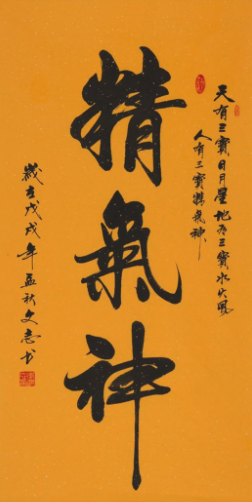 天有三寳日月星地有三寳水火風
人有三寳精氣神
精氣神
歲在戊戌年孟秋文志书